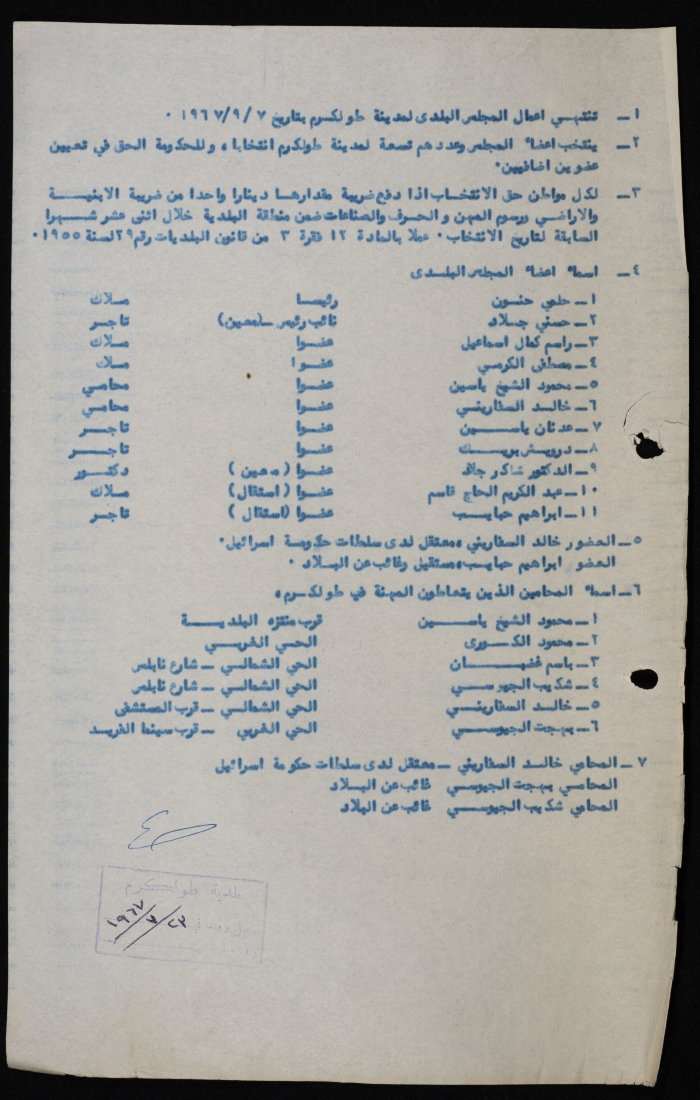 ١ـ تنتهي اعمال المجلس البلدى لمدينة طولكرم بتاريخ ١٩٦٧/٩/٧ ٠
٢ـ ينتخب اعضاء المجلس وعددهم تسعة لمدينة طولكرم انتخابا، وللحكومة الحق في تعيين
عضوين اضافيين٠
٣ـ لكل مواطن حق الانتخاب اذا دفع ضريبة مقدارها دينارا واحدا من ضريبة الابنية
والاراضي ورسوم المهن والحرف والصناعات ضمن منطقة البلدية خلال اثنى عشر شهرا
السابقة لتاريخ الانتخاب٠ عملا بالمادة ١٢ فقرة ٣ من قانون البلديات رقم ٢٩ لسنة ١٩٥٥٠
٤ـ اسماء اعضاء المجلس البلدى
١ـ حلمي حنون رئيسا ملاك
٢ـ حسني جلاد نائب رئيس ـ(معين) تاجر
٣ـ راسم كمال اسماعيل عضوا ملاك
٤ـ مصطفى الكرمي عضوا ملاك
٥ـ محمود الشيخ ياسين عضوا محامي
٦ـ خالد السفاريني عضوا محامي
٧ـ عدنان ياسين عضوا تاجر
٨ـ درويش بريك عضوا تاجر
٩ـ الدكتور شاكر جلاد عضوا (معين) دكتور
١٠ـ عبد الكريم الحاج قاسم عضوا (استقال) ملاك
١١ـ ابراهيم حبايب عضوا (استقال) تاجر
٥ـ العضور خالد السفاريني، معتقل لدى سلطات حكومة اسرائيل٠
العضور ابراهيم حبايب، مستقيل وغائب عن البلاد ٠
٦ـ اسماء المحامين الذين يتعاطون المهنة في طولكرم،
١ـ محمود الشيخ ياسين قرب منتزه البلدية
٢ـ محمود الكورى الحي الغربي
٣ـ باسم غنيان الحي الشمالي ـ شارع نابلس
٤ـ شكيب الجيوسي الحي الشمالي ـ شارع نابلس
٥ـ خالد السفاريني الحي الشمالي ـ قرب المستشفى
٦ـ بهجت الجيوسي الحي الغربي ـ قرب سينما الفريد
٧ـ المحامي خالد السفاريني ـ معتقل لدى سلطات حكومة اسرائيل
المحامي بهجت الجيوسي غائب عن البلاد
المحامي شكيب الجيوسي غائب عن البلاد
بلدية طولكرم
٢٣/٧/١٩٦٧